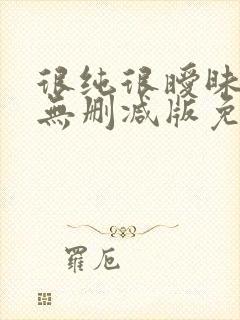 很纯很暧昧
無删减版免
羅卮